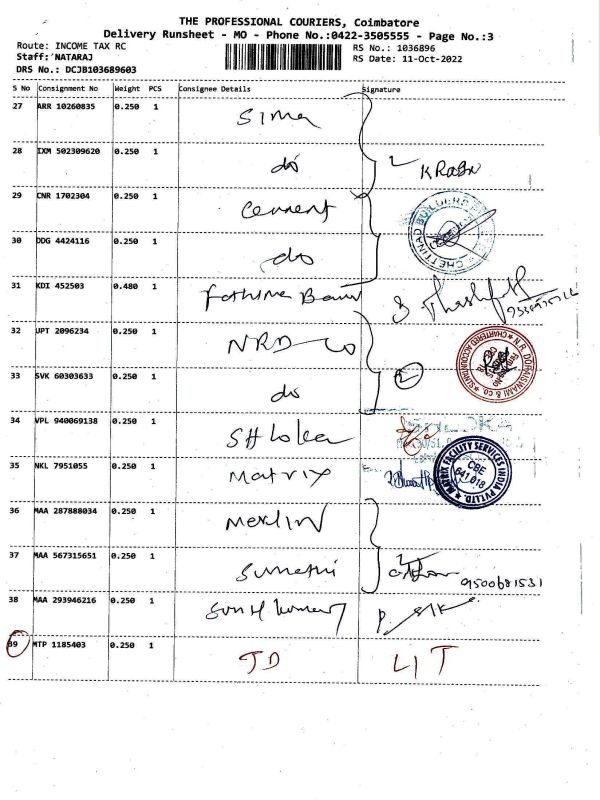 THE PROFESSIONAL COURIERS, Coimbatore
Delivery Runsheet - MO - Phone No.:0422-3505555 - Page No.:3
Route: INCOME TAX RC
RS No.: 1036896
Staff: NATARAJ
RS Date: 11-Oct-2022
DRS No.: DCJB103689603
S No Consignment No Weight PCS Consignee Details Signature
27 ARR 10260835 0.250 1 Sima
28 IXM 502309620 0.250 1 do 2
29 CNR 1702304 0.250 1 Cement
CHETTINAD BUILDERS
30 DDG 4424116 0.250 1 do
31 KDI 452503 0.480 1 Fathima Banu
32 UPT 2096234 0.250 1 NRD Co
N.R. DORAISWAMI & CO. CHARTERED ACCOUNTANTS
33 SVK 60303633 0.250 1 do 2
34 VPL 940069138 0.250 1 Shloka
35 NKL 7951055 0.250 1 Matrix
MATRIX FACILITY SERVICES INDIA PVT.LTD. CBE 641 018
36 MAA 287888034 0.250 1 Merlin
37 MAA 567315651 0.250 1 Sumathi 2 9500681531
38 MAA 293946216 0.250 1
39 MTP 1185403 0.250 1 JD LIT